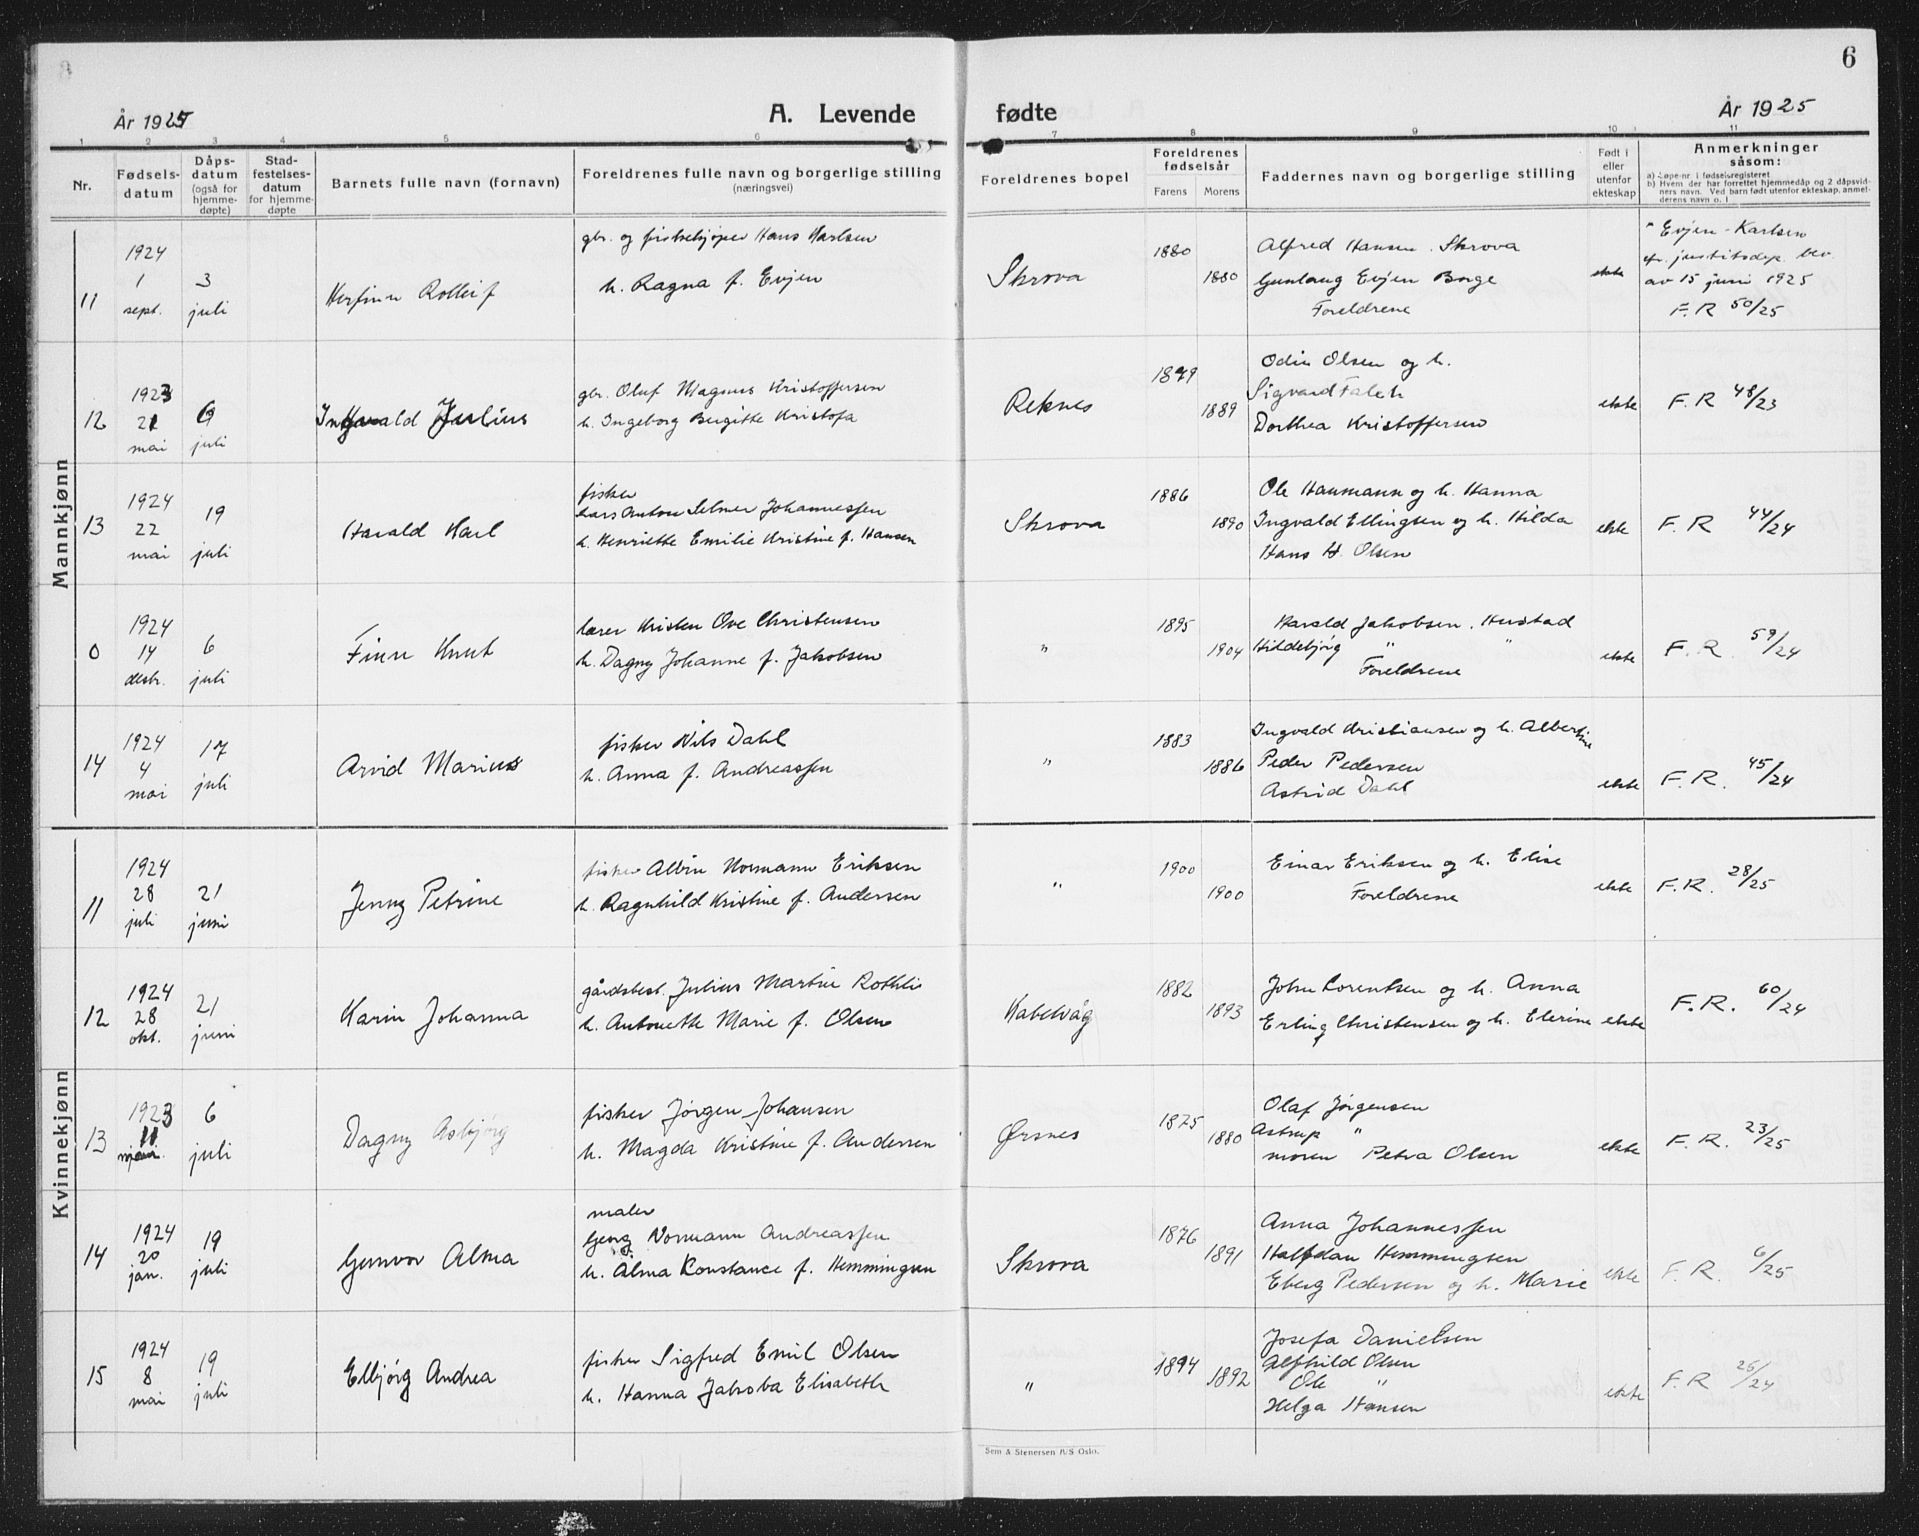 6
År 1925
A. Levende
fødte
År 1925
1 2 3 4 5 6 7 8 9 10 11
Nr.
Fødsels-
datum
Dåps-
datum
(også for
hjemme-
døpte)
Stad-
festelses-
datum
for hjemme-
døpte
Barnets fulle navn (fornavn)
Foreldrenes fulle navn og borgerlige stilling
(næringsvei)
Foreldrenes bopel
Foreldrenes
fødselsår
Farens Morens
Faddernes navn og borgerlige stilling
Født i
eller
utenfor
ekteskap
Anmerkninger
såsom:
a) Løpe-nr. i fødselsregisteret
b) Hvem der har forrettet hjemmedåp og 2 dåpsvid-
ners navn. Ved barn født utenfor ekteskap, anmel-
derens navn o. l.
Mannkjønn
11
1924
1
sept.
3
juli
Rolleif
gbr. og fiskekjøper Hans Karlsen
h. Ragna f. Evjen
Skrova
1880
1880
Alfred Hansen. Skrova
Gunlaug Evjen Borge
Foreldrene
ekte
* Evjen-Karlsen
efr. justitsdep. bev.
av 15 juni 1925
F.R 50/25
12
1923
21
mai
6
juli
Ingvald Julius
gbr. Oluf Magnus Kristoffersen
h. Ingeborg Birgitte Kristofa
Reknes
1879
1889
Odin Olsen og h.
Sigvard Falch
Dorthea Kristoffersen
ekte
F.R 48/23
13
1924
22
mai
19
juli
Harald Karl
fisker
Lars Anton Selmer Johannessen
h. Henriette Emilie Kristine f. Hansen
Skrova
1886
1890
Ole Haumann og h. Hanna
Ingvald Ellingsen og h. Hilda
Hans H. Olsen
ekte
F.R 44/24
0
1924
14
desbr.
6
juli
Finn Knut
lærer Kristen Ove Christensen
h. Dagny Johanne f. Jakobsen
"
1895
1904
Harald Jakobsen. Hustad
Hildebjørg "
Foreldrene
ekte
F.R. 59/24
14
1924
4
mai
17
juli
Arvid Marius
fisker Nils Dahl
h. Anna f. Andreassen
"
1883
1886
Ingvald Kristiansen og h. Albertine
Peder Pedersen
Astrid Dahl
ekte
F.R. 45/24
Kvinnekjønn
11
1924
28
juli
21
juni
Jenny Petrine
fisker Albin Normann Eriksen
h. Ragnhild Kristine f. Andersen
"
1900
1900
Einar Eriksen og h. Elise
Foreldrene
ekte
F.R. 28/25
12
1924
28
okt.
21
juni
Karin Johanna
gårdsbest. Julius Martin Rothli
h. Antonette Marie f. Olsen
Kabelvåg
1882
1893
John Lorentsen og h. Anna
Erling Christensen og h. Elerine
ekte
F.R. 60/24
13
1923
11
6
juli
Dagny Asbjørg
fisker Jørgen Johansen
h. Magda Kristine f. Andersen
Ørsnes
1875
1880
Olaf Jørgensen
Astrup "
moren Petra Olsen
ekte
F.R. 23/25
14
1924
20
jan.
19
juli
Gunvor Alma
maler
Georg Normann Andreassen
h. Alma Konstance f. Hemmingsen
Skrova
1876
1891
Anna Johannessen
Halfdan Hemmingsen
Eberg Pedersen og h. Marie
ekte
F.R. 6/25
15
1924
8
mai
19
juli
Elbjørg Andrea
fisker Sigfred Emil Olsen
h. Hanna Jakoba Elisabeth
"
1894
1892
Josefa Danielsen
Alfhild Olsen
Ole "
Helga Hansen
ekte
F.R 25/24
Sem & Stenersen A/S Oslo.